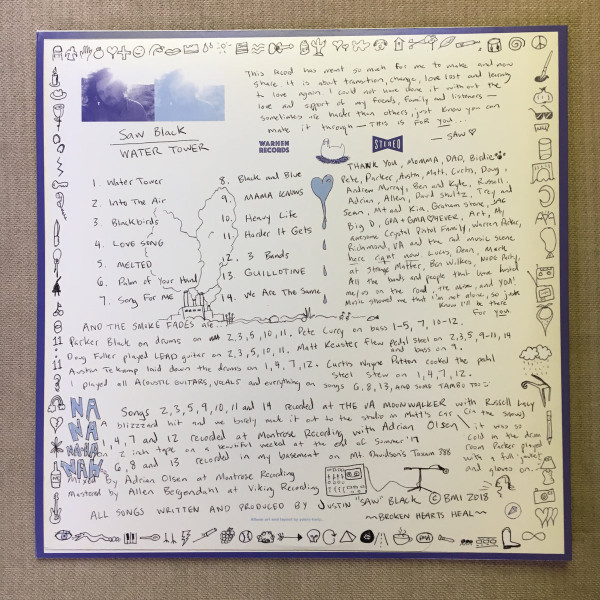 This Record has meant so much for me to make and now
share. It is about transition, change, love lost and learning
to love again. I could not have done it without the
love and support of my friends, family and listeners —
sometimes are harder than others, just know you can
make it through — THIS IS FOR YOU...
— SAW
Saw Black
WATER TOWER
WARHEN
RECORDS
STEREO
1. Water Tower
2. Into The Air
3. Blackbirds
4. LOVE SONG
5. MELTED
6. Palm of Your Hand
7. Song For Me
8. Black and Blue
9. MAMA KNOWS
10. Heavy Life
11. Harder It Gets
12. 3 Bands
13 GUILLOTINE
14. We Are The Same
THANK YOU, MOMMA, DAD, Birdie
Pete, Parker, Austin, Matt, Curtis, Doug,
Andrew Murray, Ben and Kyle, Russell,
Adrian, Allen, David Shultz, Trey and
Sean, Mt and Kia, Graham Stone, JAC
Big D, GPA + GMA 4EVER, Art, My
awesome Crystal Pistol Family, Warren Parker,
Richmond, VA and the rad music scene
here right now. Lucas, Dean, Mark
at Strange Matter, Ben Wilkes,
All the bands and people that have hosted
me/us on the road, the above, and YOU!
Music showed me that I'm not alone, so just
Know I'll be there
For you.
AND THE SMOKE FADES
Parker Black on drums on 2, 3, 5, 10, 11. Pete Curry on bass 1-5, 7, 10-12.
Doug Fuller played LEAD guitar on 2, 3, 5, 10, 11. Matt Keuster Flew pedal steel on 2, 3, 5, 9-11, 14
and bass on 9.
Austin Tekamp laid down the drums on 1, 4, 7, 12. Curtis Wayne Patton cooked the pedal
steel stew on 1, 4, 7, 12.
I played all ACOUSTIC GUITARS, VOCALS and everything on songs 6, 8, 13, AND SOME TAMBO TOO
NA
NA
NA-NA
NAH
Songs 2, 3, 5, 9, 10, 11 and 14 recorded at THE VA MOONWALKER with Russell Lacy
A blizzzard hit and we barely made it out to the studio in Matt's car (in the snow)
1, 4, 7 and 12 recorded at Montrose Recording with Adrian Olsen
on 2 inch tape on a beautiful weekend at the end of Summer '17
6, 8 and 13 recorded in my basement on Mt. Davidson's Tascam 388
it was so
cold in the drum
room Parker played
with a full jacket
and gloves on
Mixed by Adrian Olsen at Montrose Recording
Mastered by Allen Bergendahl at Viking Recording
ALL SONGS WRITTEN AND PRODUCED BY JUSTIN "SAW" BLACK © BMI 2018
~BROKEN HEARTS HEAL~